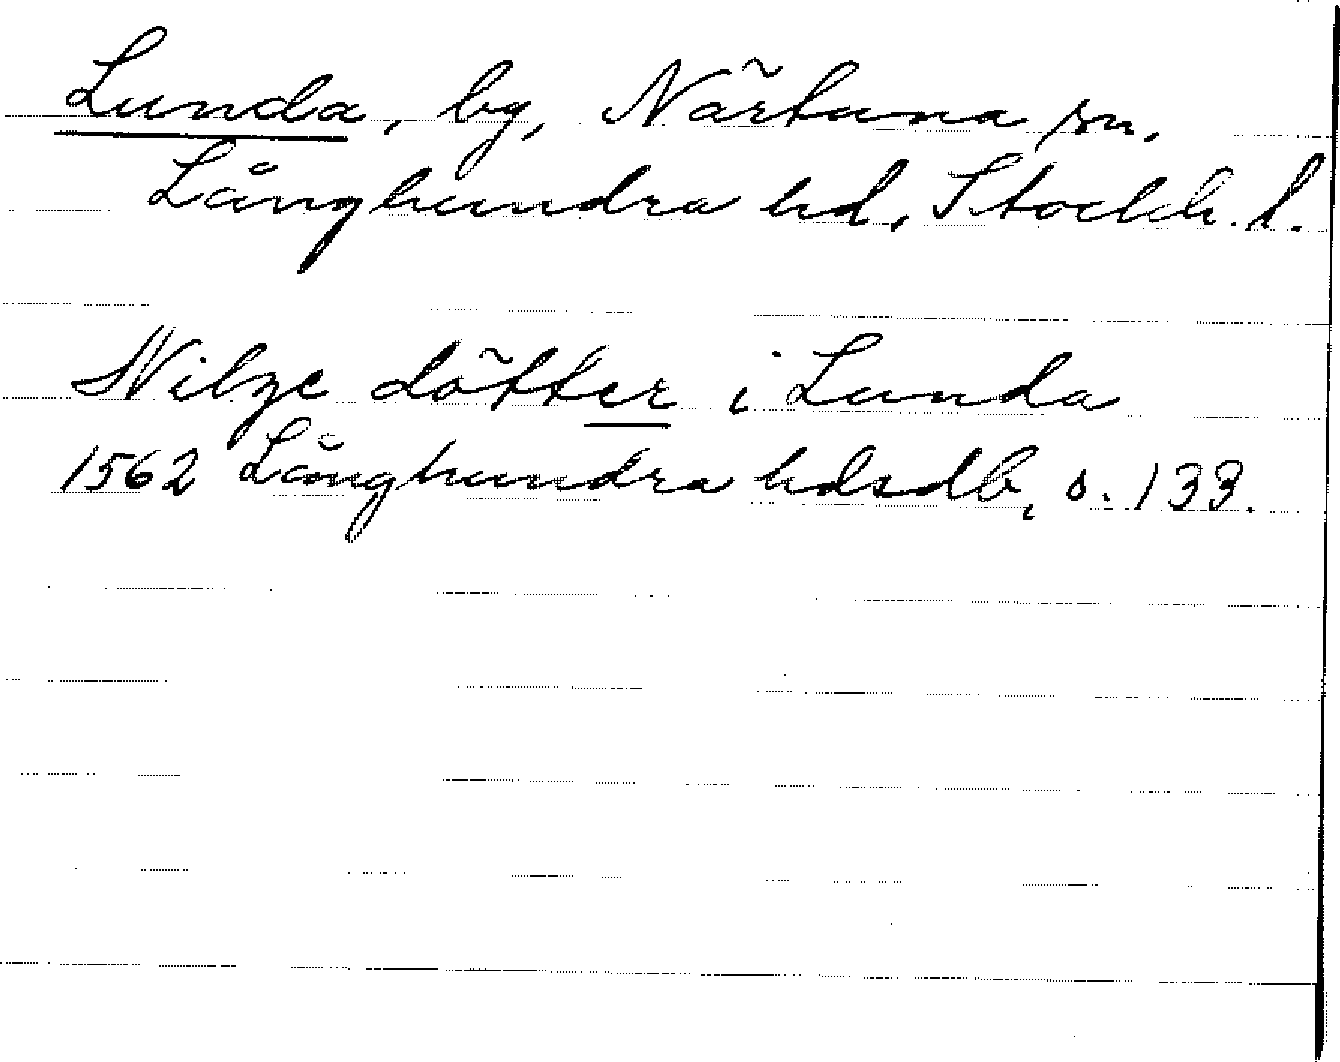 Lunda, by, Närtuna sn,
Långhundra hd, Stockh. l.
Nilze dötter i Lunda
1562 Långhundra hdsdb, s. 133.